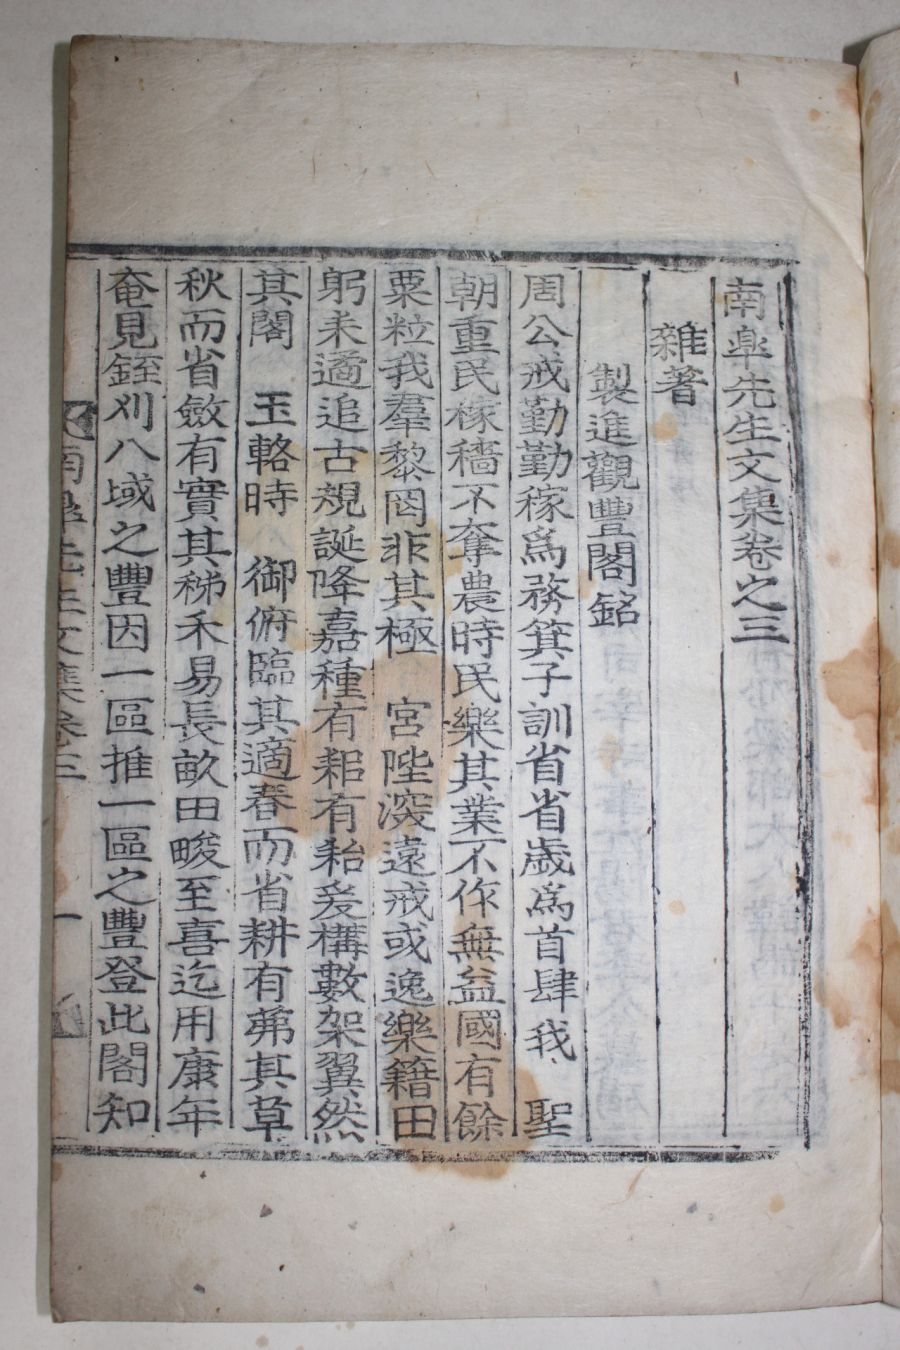 南皐先生文集卷之三
雜著
製進觀豐閣銘
周公戒勤勤稼爲務箕子訓省省歲爲首肆我 聖
朝重民稼穡不奪農時民樂其業不作無益國有餘
粟粒我羣黎罔非其極 宮陛深遠戒或逸樂籍田
躬耒遹追古規誕降嘉種有耜有耛爰構數架翼然
其閣 玉輅時 御俯臨其適春而省耕有茀其草
秋而省斂有實其稊禾易長畝田畯至喜迄用康年
奄見銍刈八域之豐因一區推一區之豐登此閣知
南皐先生文集卷三
一